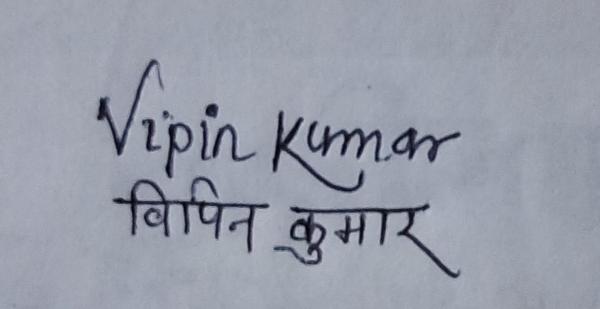 Vipin Kumar
विपिन कुमार